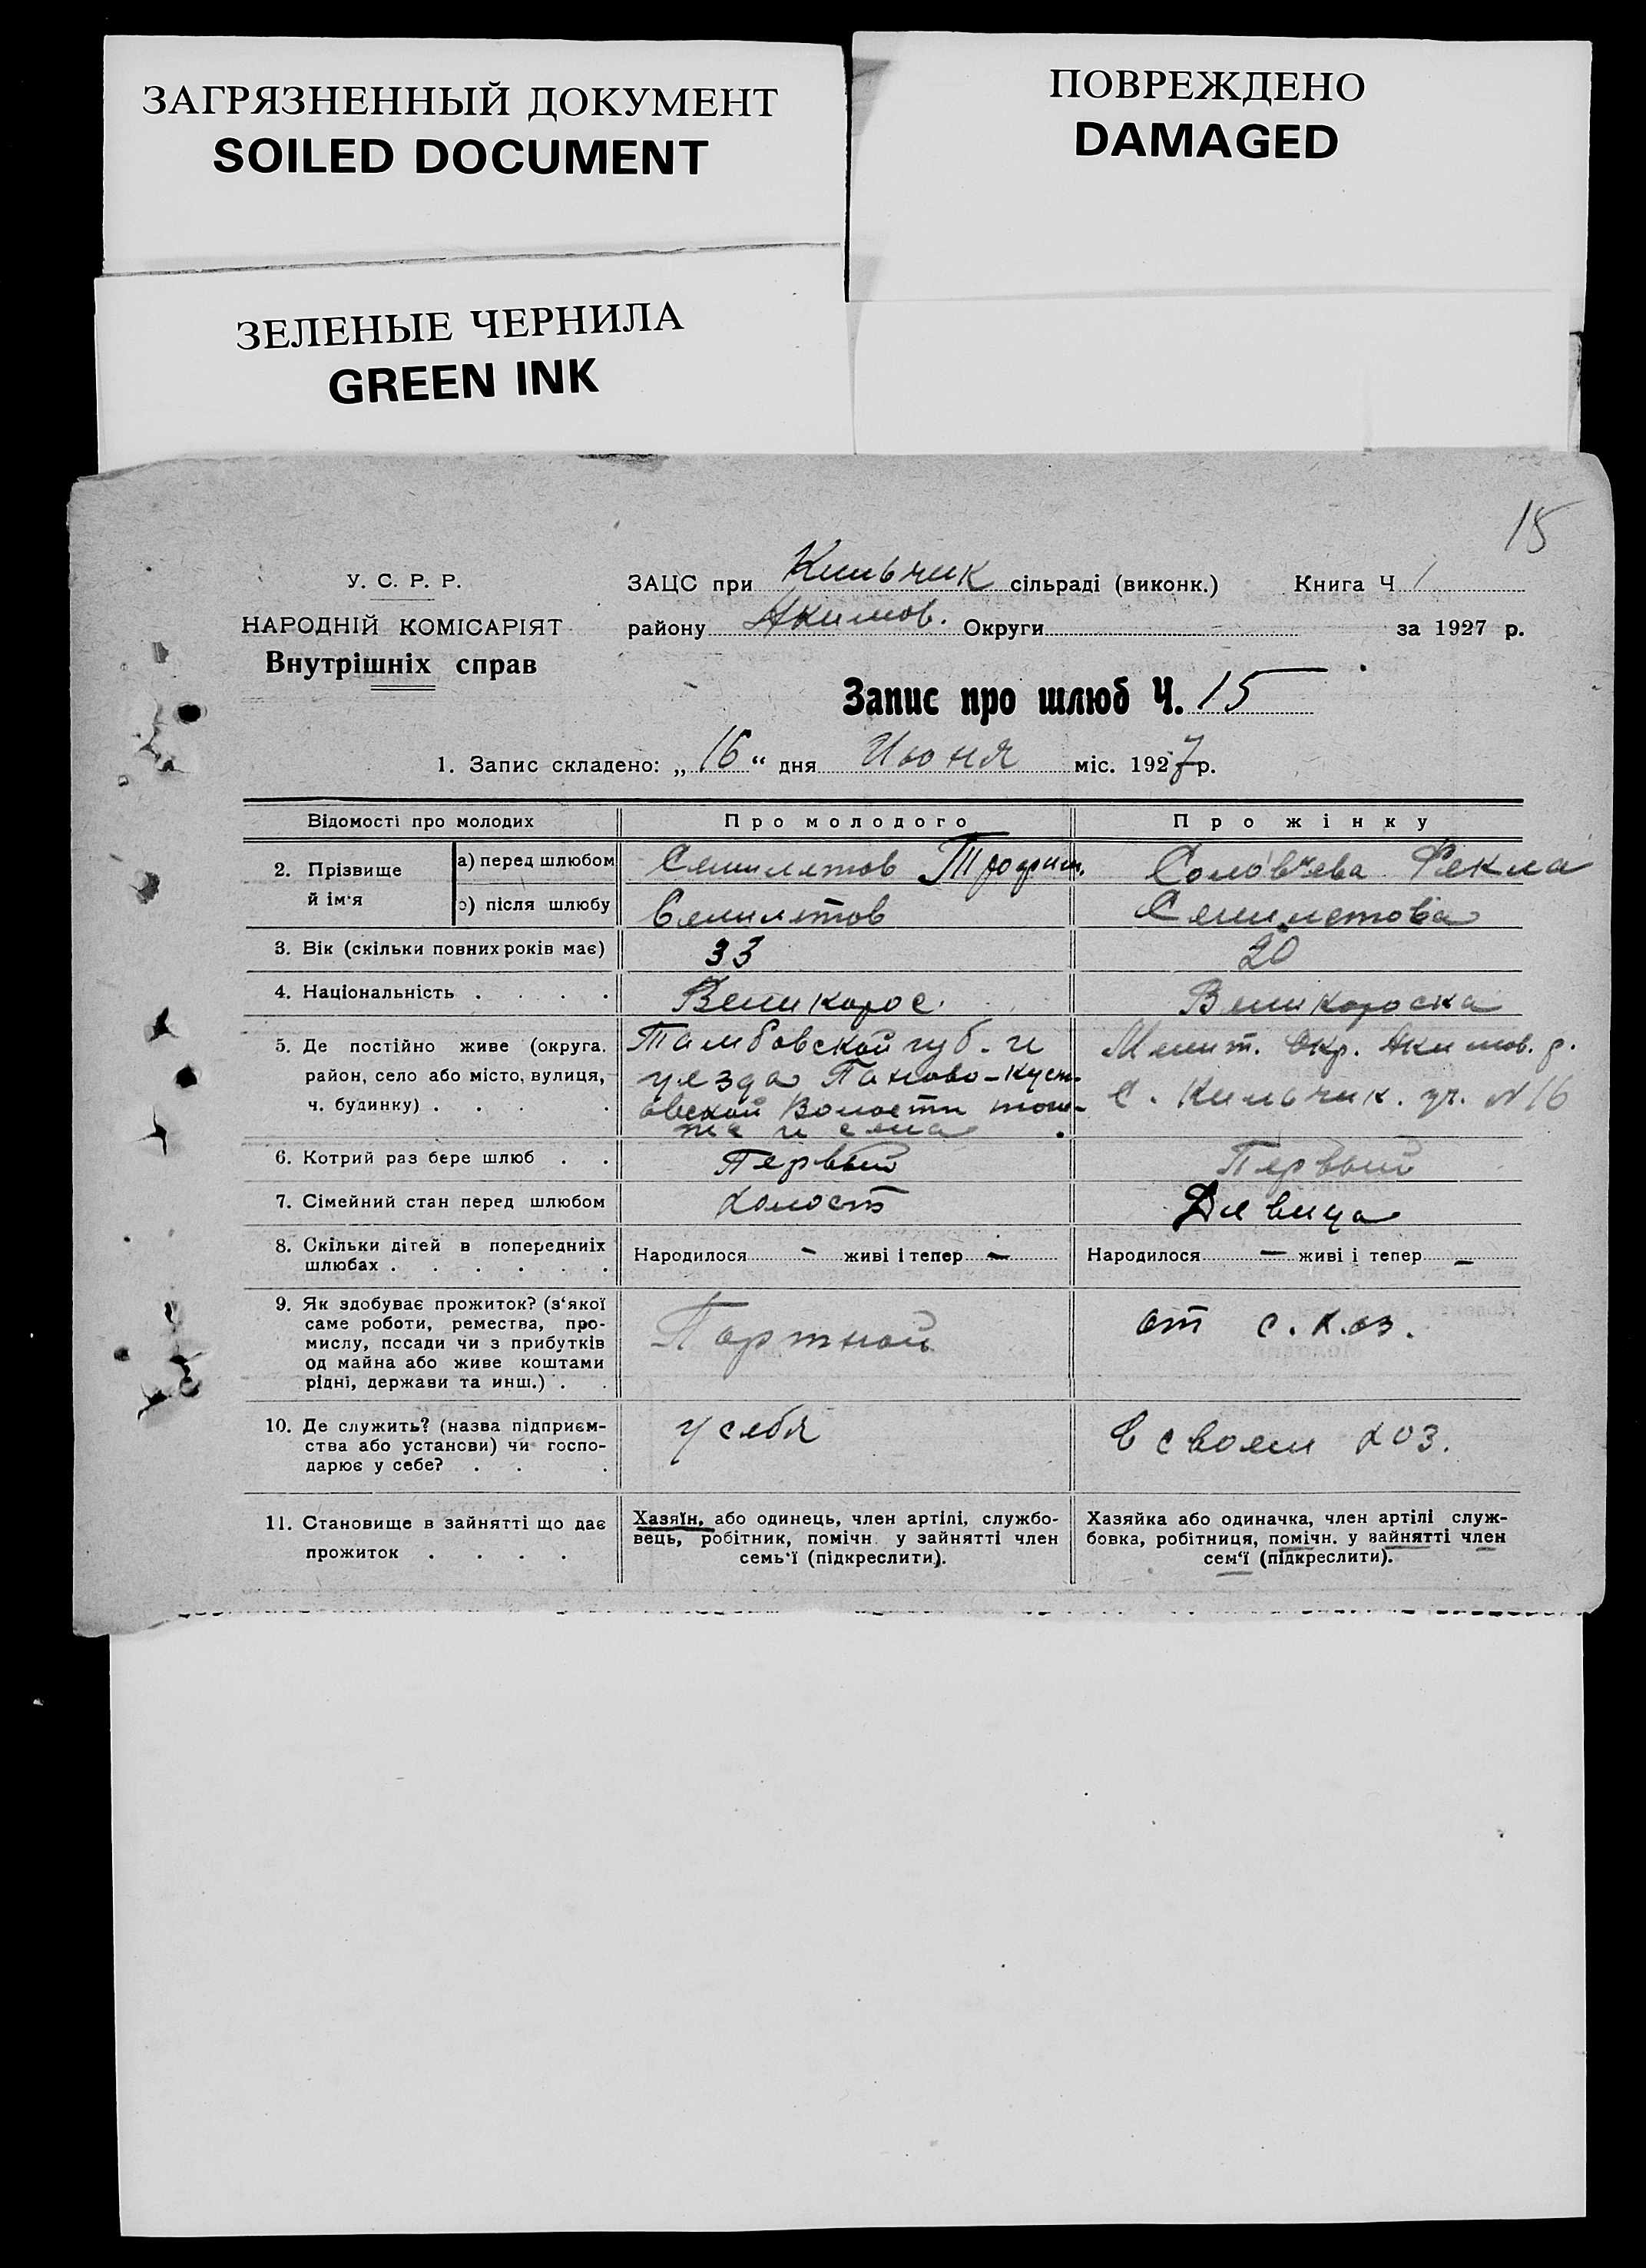 ЗАГРЯЗНЕННЫЙ ДОКУМЕНТ
SOILED DOCUMENT
ПОВРЕЖДЕНО
DAMAGED
ЗЕЛЕНЫЕ ЧЕРНИЛА
GREEN INK
15
У. С. Р. Р.
НАРОДНІЙ КОМІСАРІЯТ
Внутрішніх справ
ЗАЦС при Кильчик сільраді (виконк.) Книга Ч 1
району Акимов. Округи за 1927 р.
Запис про шлюб Ч. 15
1. Запис складено: „16“ дня Июня міс. 1927 р.
Відомості про молодих
Про молодого
Про жінку
2. Прізвище й ім‘я
а) перед шлюбом
Семилетов Трофим.
Соловьева Фекла
після шлюбу
Семилетов
Семилетова
3. Вік (скільки повних років має)
33
20
4. Національність . . . .
Великорос.
Великороска
5. Де постійно живе (округа.
район, село або місто, вулиця,
ч. будинку) . . . .
Тамбовской губ. и
уезда Паново-Куст-
овской Волости того-
же и села
Мелит. Окр. Акимов. р.
с. Кильчик. ул. N 16
6. Котрий раз бере шлюб . .
Первый
Первый
7. Сімейний стан перед шлюбом
Холост
Девица
8. Скільки дітей в попередніх
шлюбах . . . . . .
Народилося - живі і тепер -
Народилося — живі і тепер -
9. Як здобуває прожиток? (з‘якої
саме роботи, ремества, про-
мислу, посади чи з прибутків
од майна або живе коштами
рідні, держави та инш.) . .
Портной
от с. х.оз.
10. Де служить? (назва підприєм-
ства або установи) чи госпо-
дарює у себе? . . .
у себя
В своем хоз.
11. Становище в зайнятті що дає
прожиток . . . .
Хазяїн, або одинець, член артілі, службо-
вець, робітник, помічн. у зайнятті член
семь‘ї (підкреслити).
Хазяйка або одиначка, член артілі служ-
бовка, робітниця, помічн. у зайнятті член
сем‘ї (підкреслити).